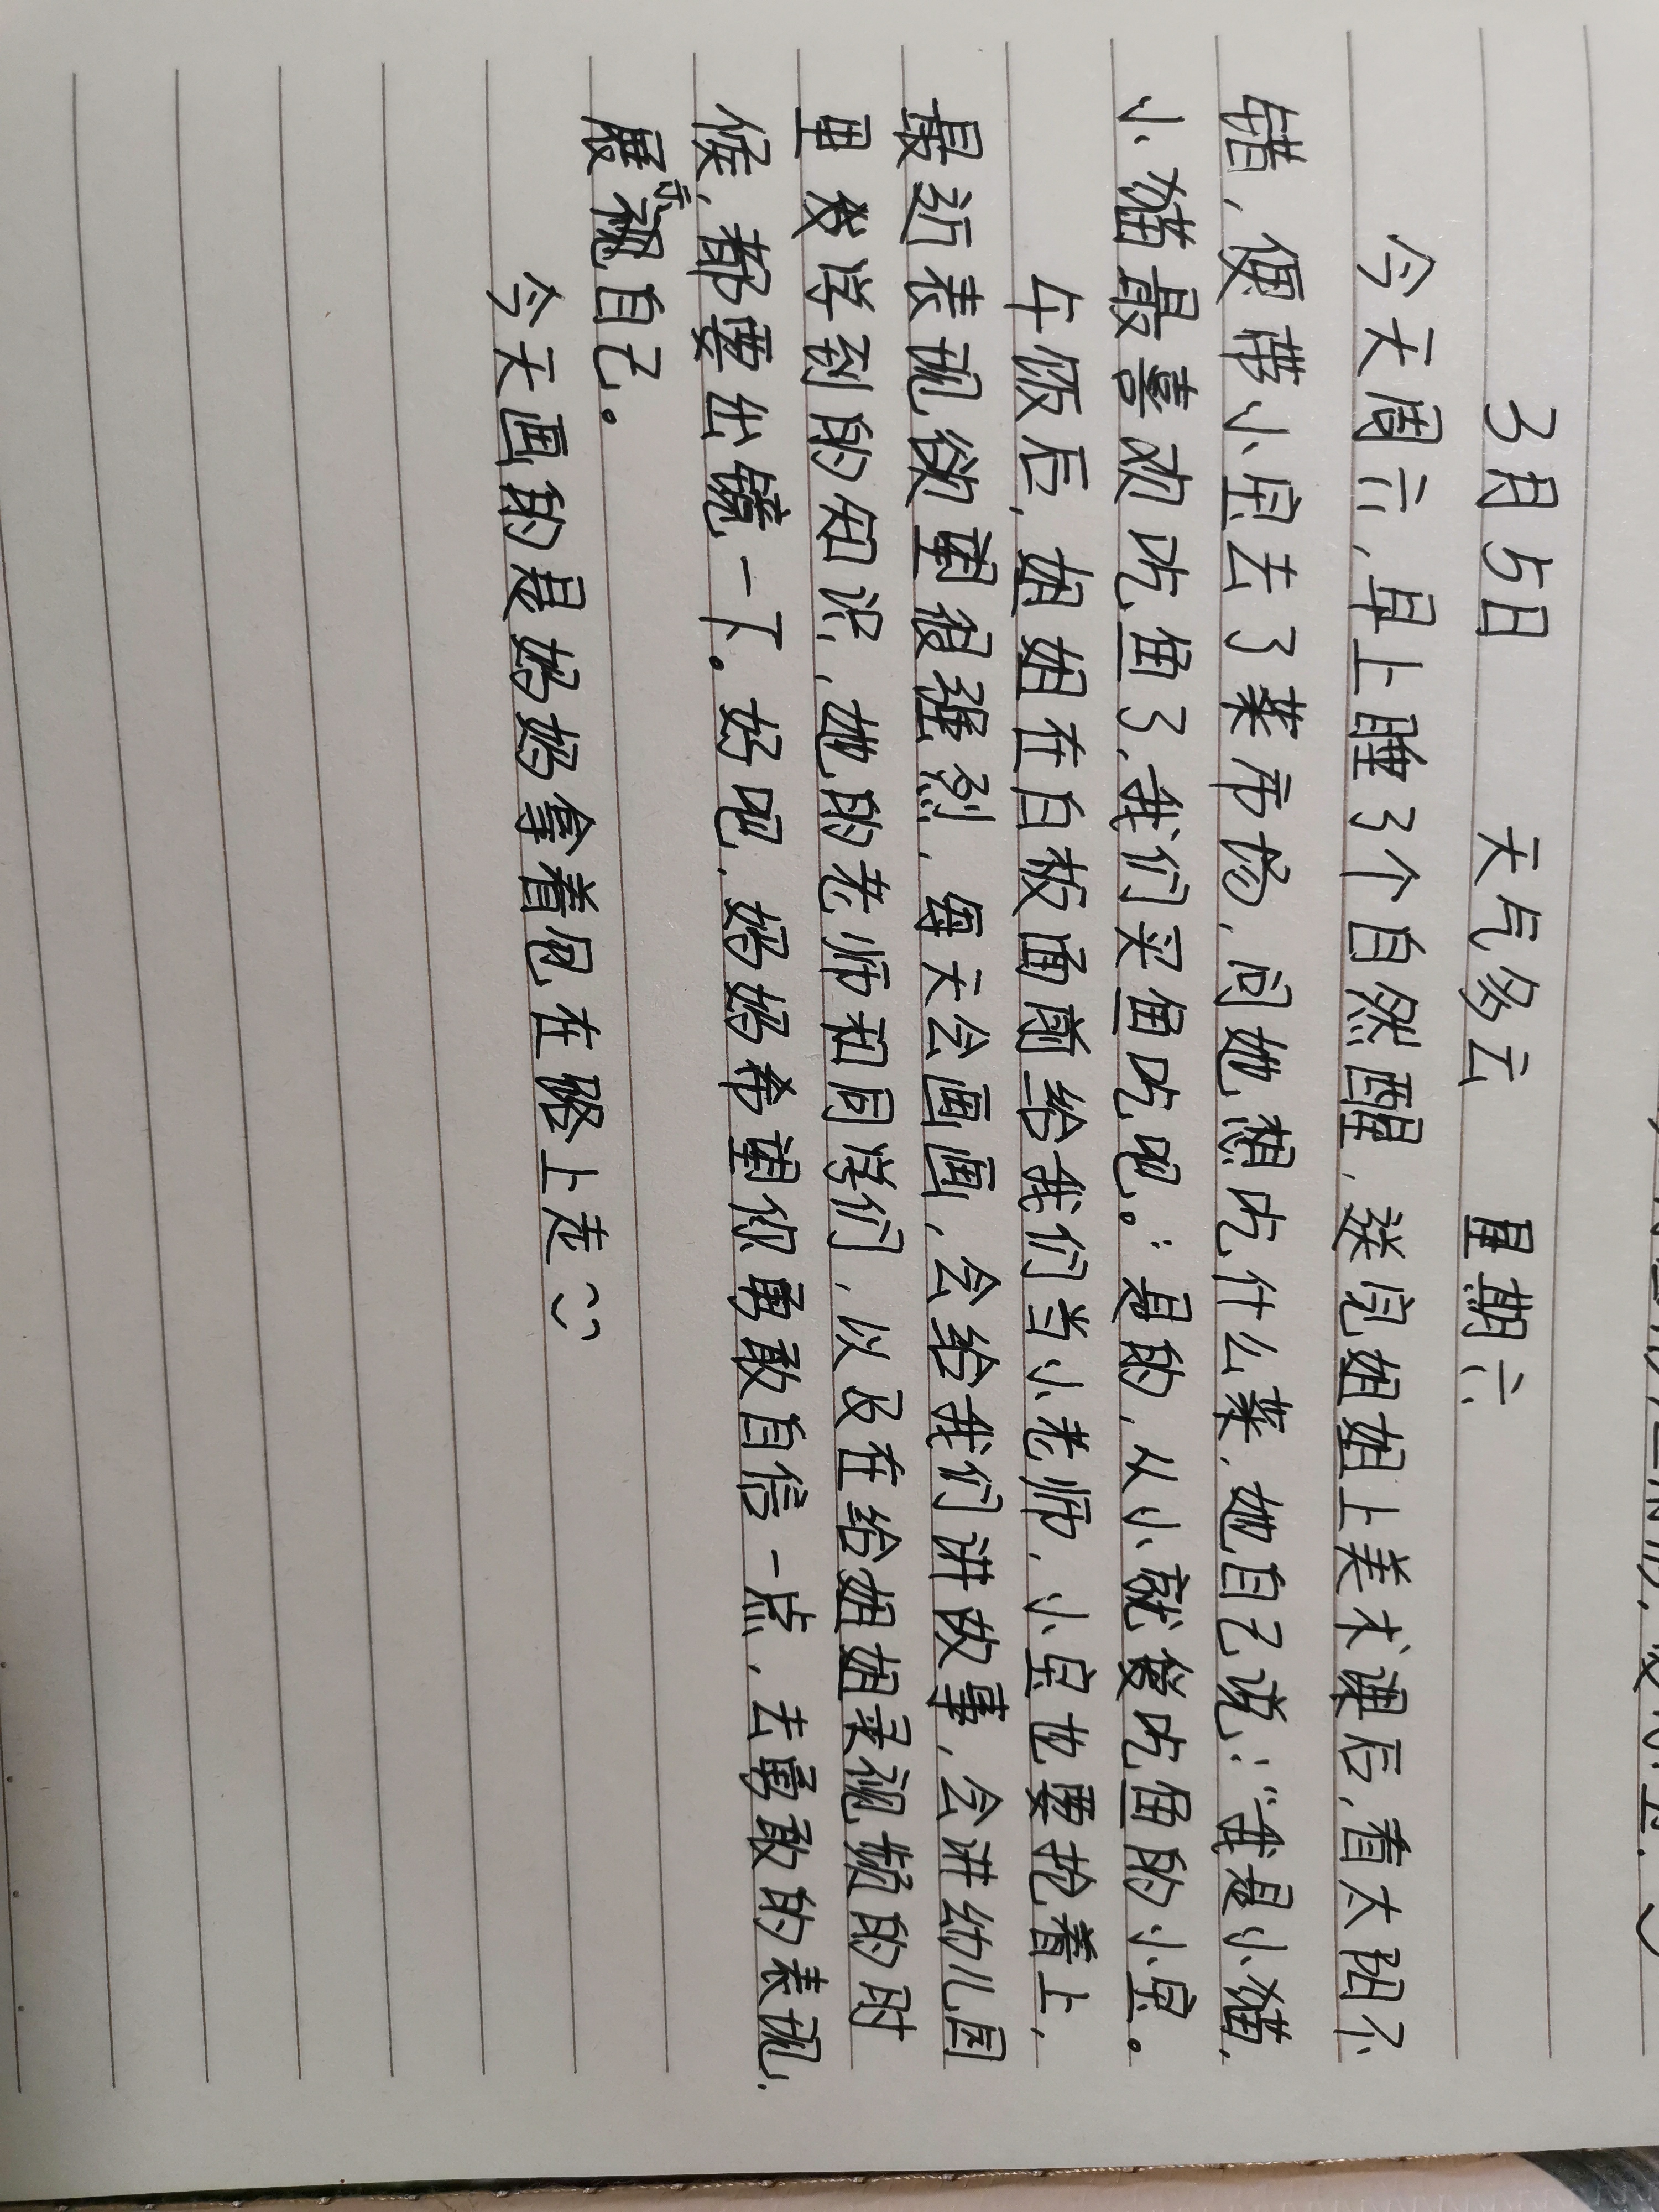 3月5日 天气多云 星期六
今天周六,早上睡了个自然醒,送完姐姐上美术课后,看太阳不
错,便带小宝去了菜市场,问她想吃什么菜,她自己说:“我是小猫,
小猫最喜欢吃鱼了,我们买鱼吃吧。”是的,从小就爱吃鱼的小宝。
午饭后,姐姐在白板面前给我们当小老师,小宝也要抢着上,
最近表现欲望很强烈,每天会画画,会给我们讲故事,会讲幼儿园
里发学到的知识,她的老师和同学们,以及在给姐姐录视频的时
候,都要出镜一下。好吧,妈妈希望你勇敢自信一点,去勇敢的表现,
展示自己。
今天画的是妈妈拿着包在路上走